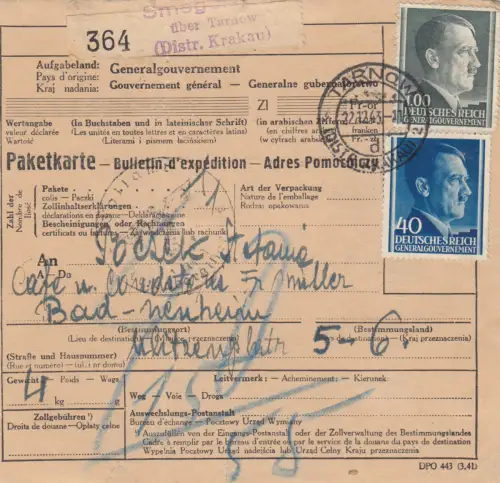 364
über Tarnow
(Distr. Krakau)
Aufgabeland: Generalgouvernement
Pays d'origine: Gouvernement général - Generalne gubernatorstwo
Kraj nadania:
1.00
DEUTSCHES REICH
GENERALGOUVERNEMENT
TARNOW
22.12.43
(DISTR. KRAKAU) 2
Wertangabe (in Buchstaben und in lateinischer Schrift)
valeur déclarée (Les unités en toutes lettres et en caractères latins)
Wartość (Literami i pismem łacińskim)
Zl
(in arabischen Ziffern)
(en chiffres arabes)
(w cyfrach arabskich)
Paketkarte - Bulletin d'expédition - Adres Pomocniczy
40
DEUTSCHES REICH
GENERALGOUVERNEMENT
Zahl der
Nombre de
Ilość
Pakete
colis - Paczki
Zollinhaltserklärungen
déclarations en douane - Deklaracje celne
Bescheinigungen oder Rechnungen
certificats ou factures - Zaświadczenia lub rachunki
Art der Verpackung
Nature de l'emballage
Rodzaj opakowania
Stefania
An
A - Do
Café u. Conditus Fr. Müller
Bad-Nauheim
(Bestimmungsort)
(Lieu de destination) (Miejsce przeznaczenia)
(Bestimmungsland)
(Pays de destination) (Kraj przeznaczenia)
5-6
(Straße und Hausnummer)
(Rue et numéro) (ul. i nr domu)
Gewicht Poids - Waga
4 kg g
Leitvermerk: - Acheminement: - Kierunek
Weg - Voie - Droga
10
55
Zollgebühren ¹)
Droits de douane - Opłaty celne
Auswechslungs-Postanstalt
Bureau d'échange - Pocztowy Urząd Wymiany
¹) Auszufüllen von der Eingangs-Postanstalt oder der Zollverwaltung des Bestimmungslandes
Cadre à remplir par le bureau d'entrée ou par le service de la douane du pays de destination
Wypełnia Pocztowy Urząd nadejścia lub Urząd Celny Kraju przeznaczenia
DPO 443 (3,41)